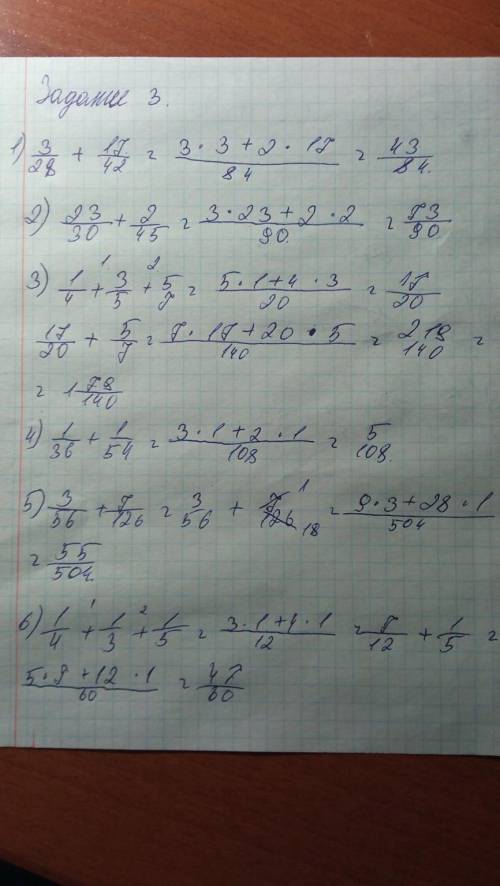 Задание 3.
1) 3/28 + 17/42 = 3·3+2·17/84 = 43/84.
2) 23/30 + 2/45 = 3·23+2·2/90. = 73/90
3) 1/4 +¹ 3/5 +² 5/7 = 5·1+4·3/20 = 17/20
17/20 + 5/7 = 7·17+20·5/140 = 219/140 =
= 1 79/140
4) 1/36 + 1/54 = 3·1+2·1/108 = 5/108.
5) 3/56 + 7/126 = 3/56 + 7/126 1/18 = 9·3+28·1/504
= 55/504.
6) 1/4 +¹ 1/3 +² 1/5 = 3·1+4·1/12 = 7/12 + 1/5 =
5·7+12·1/60 = 47/60